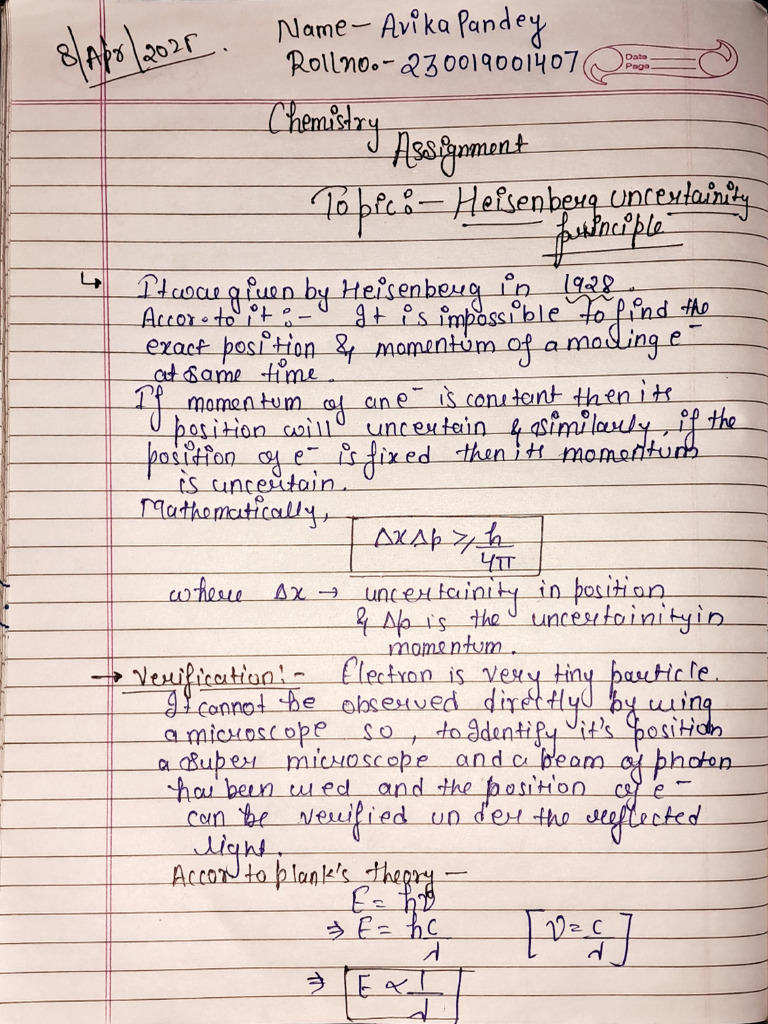 8/Apr/2025.
Name- Avika Pandey
Rollno.- 230019001407
Date
Page
Chemistry
Assignment
Topic:- Heisenberg uncertainity
principle
↳ It was given by Heisenberg in 1928.
Accor. to it :- It is impossible to find the
exact position & momentum of a moving e⁻
at same time.
If momentum of an e⁻ is constant then its
position will uncertain & similarly, if the
position of e⁻ is fixed then its momentum
is uncertain.
Mathematically,
Δx Δp ≥ h/4π
where Δx → uncertainity in position
& Δp is the uncertainity in
momentum.
→ Verification:- Electron is very tiny particle.
It cannot be observed directly by using
a microscope so, to Identify it's position
a super microscope and a beam of photon
has been used and the position of e⁻
can be verified under the reflected
light.
Accor to plank's theory -
E = hν
⇒ E = hc/λ [ν = c/λ]
⇒ E ∝ 1/λ